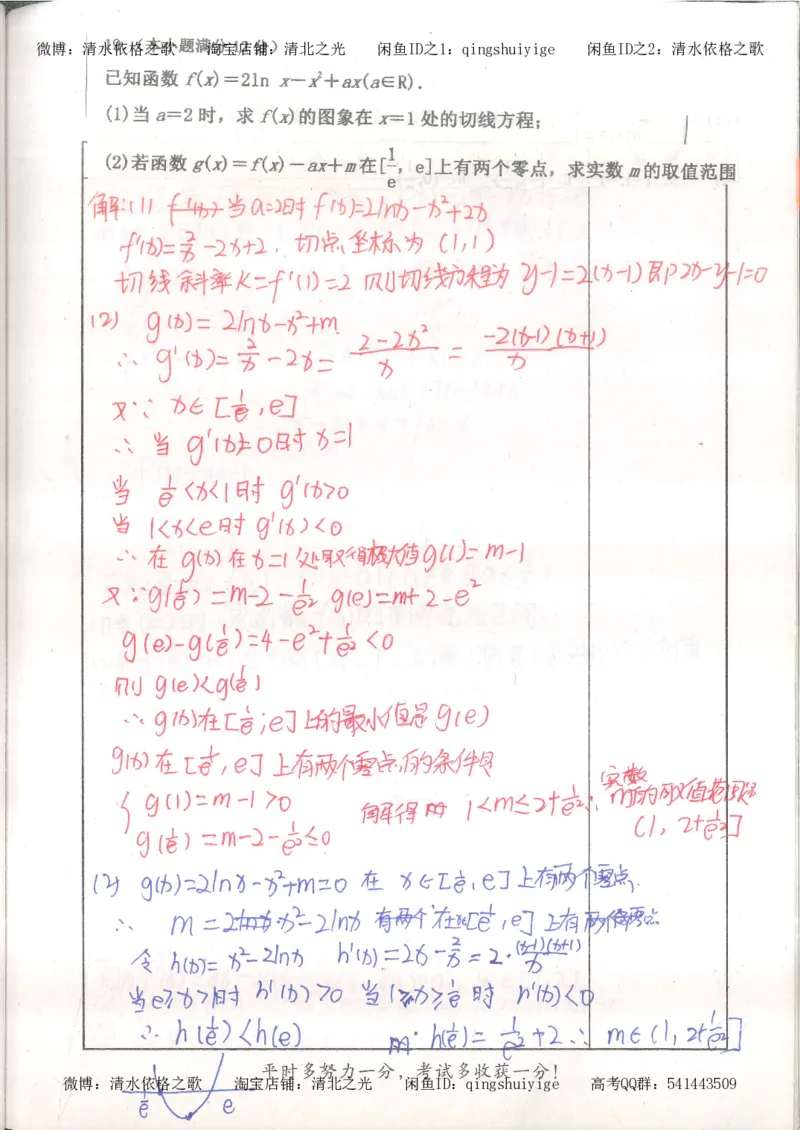 微博：清水依格之歌 淘宝店铺：清北之光 闲鱼ID之1：qingshuiyige 闲鱼ID之2：清水依格之歌
已知函数 f(x)=2ln x-x²+ax(a∈R).
(1)当 a=2 时，求 f(x)的图象在 x=1 处的切线方程;
(2)若函数 g(x)=f(x)-ax+m 在[1/e，e]上有两个零点，求实数 m 的取值范围
解:(1) 当a=2时 f(x)=2lnx-x²+2x
f'(x)=2/x-2x+2，切点坐标为 (1,1)
切线斜率K=f'(1)=2 则切线方程为 y-1=2(x-1) 即2x-y-1=0
(2) g(x)=2lnx-x²+m.
∴ g'(x)=2/x-2x=(2-2x²)/x=-2(x-1)(x+1)/x
又∵ x∈[1/e,e]
∴ 当 g'(x)=0时 x=1
当 1/e<x<1时 g'(x)>0
当 1<x<e时 g'(x)<0
∴ 在 g(x)在x=1处取得极大值g(1)=m-1
又∵g(1/e)=m-2-1/e² g(e)=m+2-e²
g(e)-g(1/e)=4-e²+1/e²<0
则 g(e)<g(1/e)
∴ g(x)在[1/e;e]上的最小值是 g(e)
g(x)在[1/e,e]上有两个零点的条件是
g(1)=m-1>0
g(1/e)=m-2-1/e²≤0
解得 1<m≤2+1/e² ∴ 实数m的取值范围是
(1, 2+1/e²]
(2) g(x)=2lnx-x²+m=0 在 x∈[1/e,e]上有两个零点.
∴ m=x²-2lnx 有两个在x∈[1/e,e]上有两个零点
令 h(x)=x²-2lnx h'(x)=2x-2/x=2·(x-1)(x+1)/x
当e≥x>1时 h'(x)>0 当1>x≥1/e时 h'(x)<0
∴ h(1/e)<h(e) h(1/e)=1/e²+2 ∴ m∈(1, 2+1/e²]
平时多努力一分，考试多收获一分！
微博：清水依格之歌 淘宝店铺：清北之光 闲鱼ID：qingshuiyige 高考QQ群：541443509
1/e e